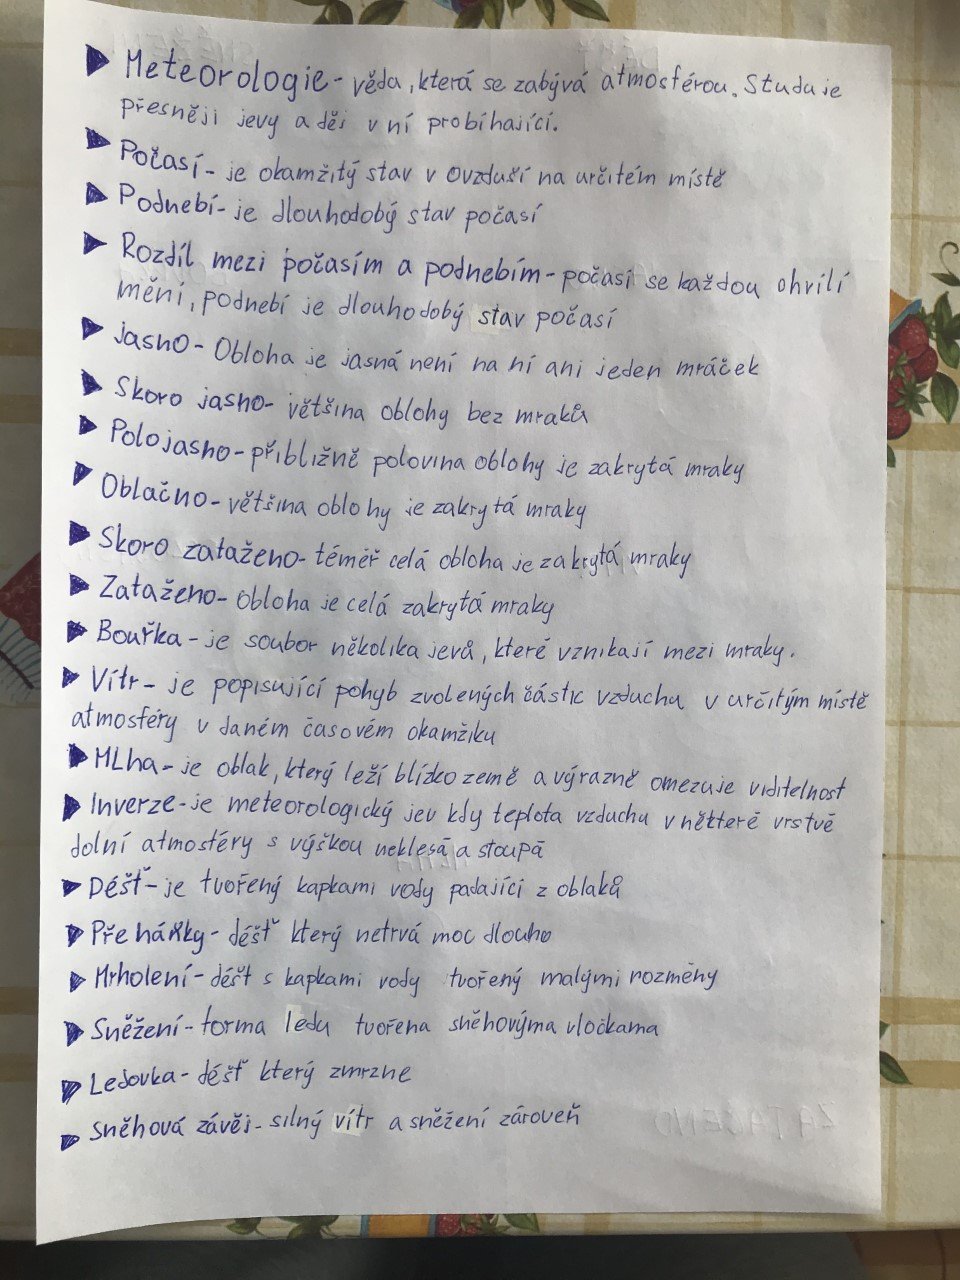 Meteorologie - věda, která se zabývá atmosférou. Studuje
přesněji jevy a děj v ní probíhající.
Počasí - je okamžitý stav v ovzduší na určitém místě
Podnebí - je dlouhodobý stav počasí
Rozdíl mezi počasím a podnebím - počasí se každou chvíli
mění, podnebí je dlouhodobý stav počasí
Jasno - Obloha je jasná není na ní ani jeden mráček
Skoro jasno - většina oblohy bez mraků
Polojasno - přibližně polovina oblohy je zakrytá mraky
Oblačno - většina oblohy je zakrytá mraky
Skoro zataženo - téměř celá obloha je zakrytá mraky
Zataženo - obloha je celá zakrytá mraky
Bouřka - je soubor několika jevů, které vznikají mezi mraky.
Vítr - je popisující pohyb zvolených částic vzduchu v určitým místě
atmosféry v daném časovém okamžiku
Mlha - je oblak, který leží blízko země a výrazně omezuje viditelnost
Inverze - je meteorologický jev kdy teplota vzduchu v některé vrstvě
dolní atmosféry s výškou neklesá a stoupá
Déšť - je tvořený kapkami vody padající z oblaků
Přeháňky - déšť který netrvá moc dlouho
Mrholení - déšť s kapkami vody tvořený malými rozměny
Sněžení - forma ledu tvořena sněhovýma vločkama
Ledovka - déšť který zmrzne
Sněhová závěj - silný vítr a sněžení zároveň